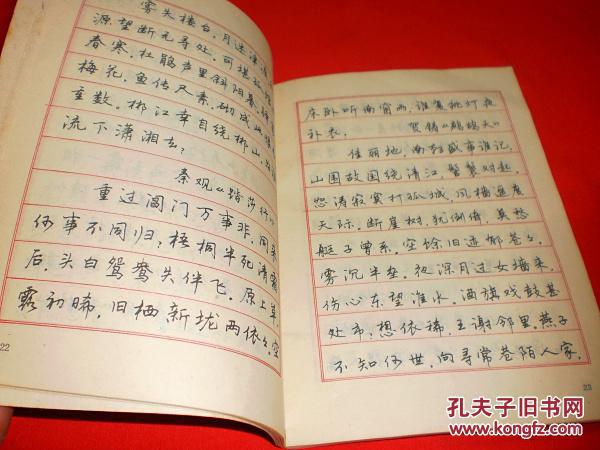 雾失楼台，月迷津
源望断无寻处。可堪
春寒，杜鹃声里斜阳暮。
梅花，鱼传尺素，砌成此
重数。郴江幸自绕郴山，
流下潇湘去？
秦观《踏莎行
重过阊门万事非，同来
何事不同归？梧桐半死清霜
后，头白鸳鸯失伴飞。原上草，
露初晞，旧栖新垅两依々。空
22
床卧听南窗雨，谁复挑灯夜
补衣。 贺铸《鹧鸪天》
佳丽地，南朝盛事谁记。
山围故国绕清江，髻鬟对起。
怒涛寂寞打孤城，风樯遥度
天际。断崖树，犹倒倚，莫愁
艇子曾系。空馀旧迹郁苍々，
雾沉半垒。夜深月过女墙来，
伤心东望淮水。酒旗戏鼓甚
处市？想依稀，王谢邻里。燕子
不知何世，向寻常巷陌人家，
23
孔夫子旧书网
www.kongfz.com